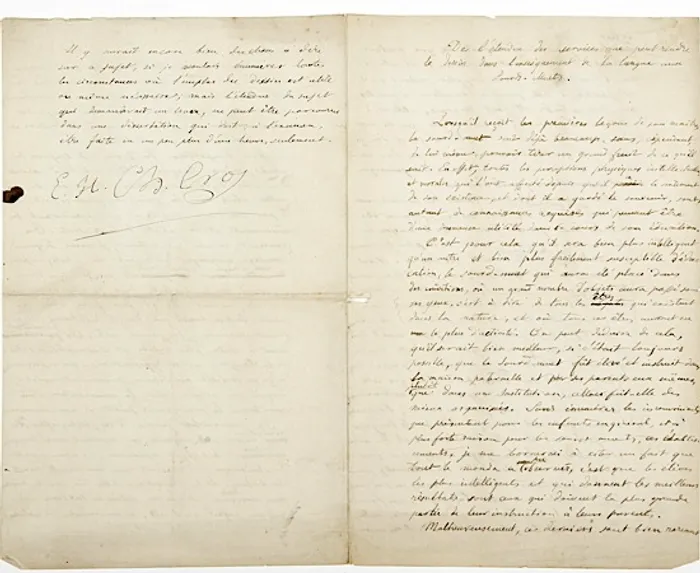 Il y aurait encore bien des choses à dire
sur ce sujet, si je voulais énumérer toutes
les circonstances où l'emploi des dessins est utile
ou même nécessaire, mais l'étendue du sujet
qui demanderait un livre, ne peut être parcourue
dans une dissertation qui doit qui l'examen,
être faite en un peu plus d'une heure, seulement.
E. H. Ch. Cros
De l'étendue des services que peut rendre
le dessin dans l'enseignement de la langue aux
Sourds-Muets.
Lorsqu'il reçoit les premières leçons de son maître,
le sourd-muet sait déjà beaucoup, sans, cependant,
de lui même, pouvoir tirer un grand fruit de ce qu'il
sait. En effet, toutes les perceptions physiques intellectuelles
et morales qui l'ont affecté depuis
de son existence et dont il a gardé le souvenir, sont
autant de connaissances acquises qui peuvent être
d'une immense utilité dans le cours de son éducation.
C'est pour cela qu'il sera bien plus intelligent
qu'un autre et bien plus facilement susceptible d'édu-
cation, le sourd-muet qui aura été placé dans
des conditions, où un grand nombre d'objets aura passé sous
ses yeux, c'est à dire de tous les êtres qui existent
dans la nature, et où tous ces êtres, auront eu
le plus d'activité. On peut déduire de cela,
qu'il serait bien meilleur, si c'était toujours
possible, que le sourd-muet fût élevé et instruit dans
la maison paternelle et par ses parents eux mêmes
plutôt que dans une Institution, celle-ci fût-elle des
mieux organisées. Sans énumérer les inconvénients
que présentent pour les enfants en général, et à
plus forte raison pour les sourds muets, ces établis-
sements, je me bornerai à citer un fait que
tout le monde a observé, c'est que les élèves
les plus intelligents et qui donnent les meilleurs
résultats sont ceux qui doivent la plus grande
partie de leur instruction à leurs parents.
Malheureusement, ces derniers sont bien rares